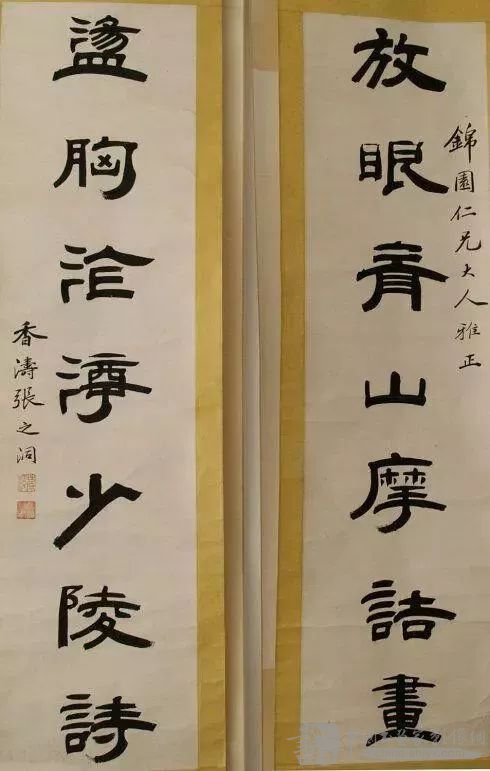 錦園仁兄大人雅正
放眼青山摩詰畫
盪胸滄海少陵詩
香濤張之洞